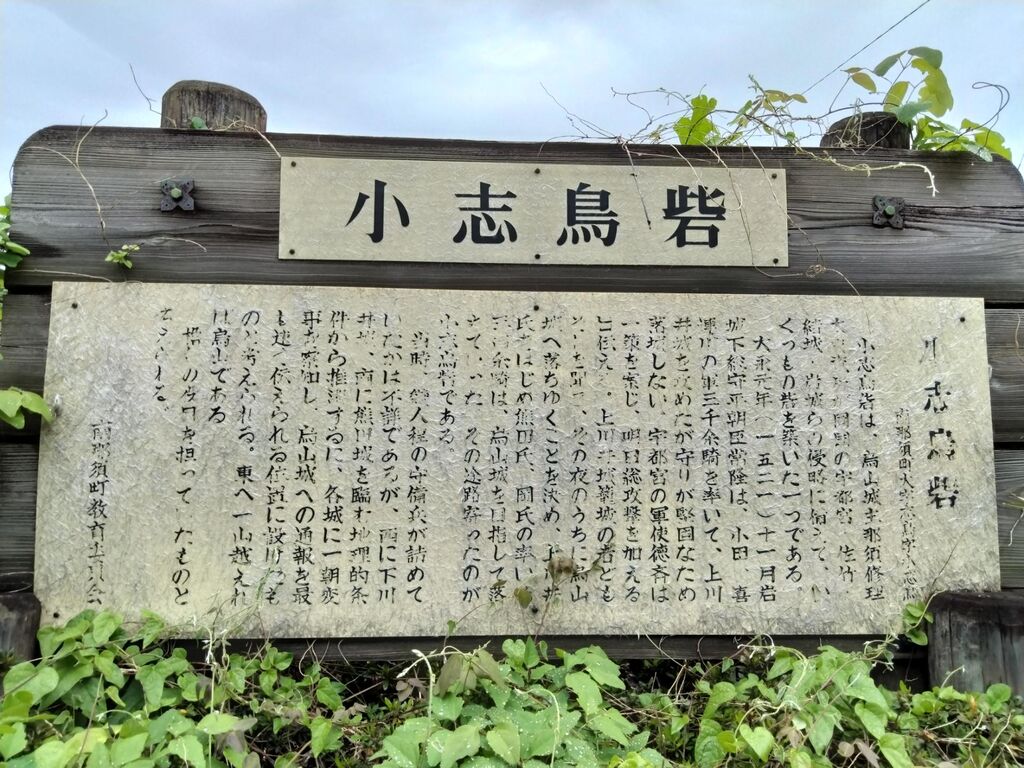 小志鳥砦
小志鳥砦
南那須町大字志鳥字小志鳥
小志鳥砦は、烏山城主那須修理
大夫が、周囲の宇都宮、佐竹、
結城、岩城らの侵略に備えて、い
くつもの砦を築いた一つである。
大永元年(一五二一)十一月岩
城下総守平朝臣常隆は、小田、喜
連川の軍三千余騎を率いて、上川
井城を攻めたが守りが堅固なため
落城しない。宇都宮の軍使徳斉は
一策を案じ、明日総攻撃を加える
と伝えた。上川井城籠城の者ども
それを聞き、その夜のうちに烏山
城へ落ちゆくことを決め、上川井
氏をはじめ熊田氏、岡氏の率いる
三百余騎は、烏山城を目指して落
ちていった。その途路寄ったのが
小志鳥砦である。
当時、幾人程の守備兵が詰めて
いたかは不詳であるが、西に下川
井城、南に熊田城を臨む地理的条
件から推測するに、各城に一朝変
事を察知し、烏山城への通報を最
も速く伝えられる位置に設けたも
のと考えられる。東へ一山越えれ
は烏山である
の役目を担って たものと
南那須町教育委員会